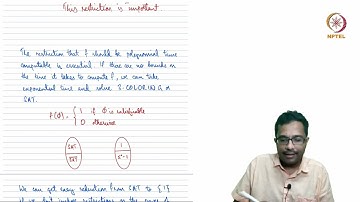 This restriction is important
NPTEL
The restriction that f should be polynomial time
computable is essential. If there are no bounds on
the time it takes to compute f, we can take
exponential time and solve 2-COLORING or
SAT.
f(Φ) = { 1 if Φ is satisfiable
0 otherwise
SAT
1
We can get easy reduction from SAT to {1}
if we put
restrictions on the power